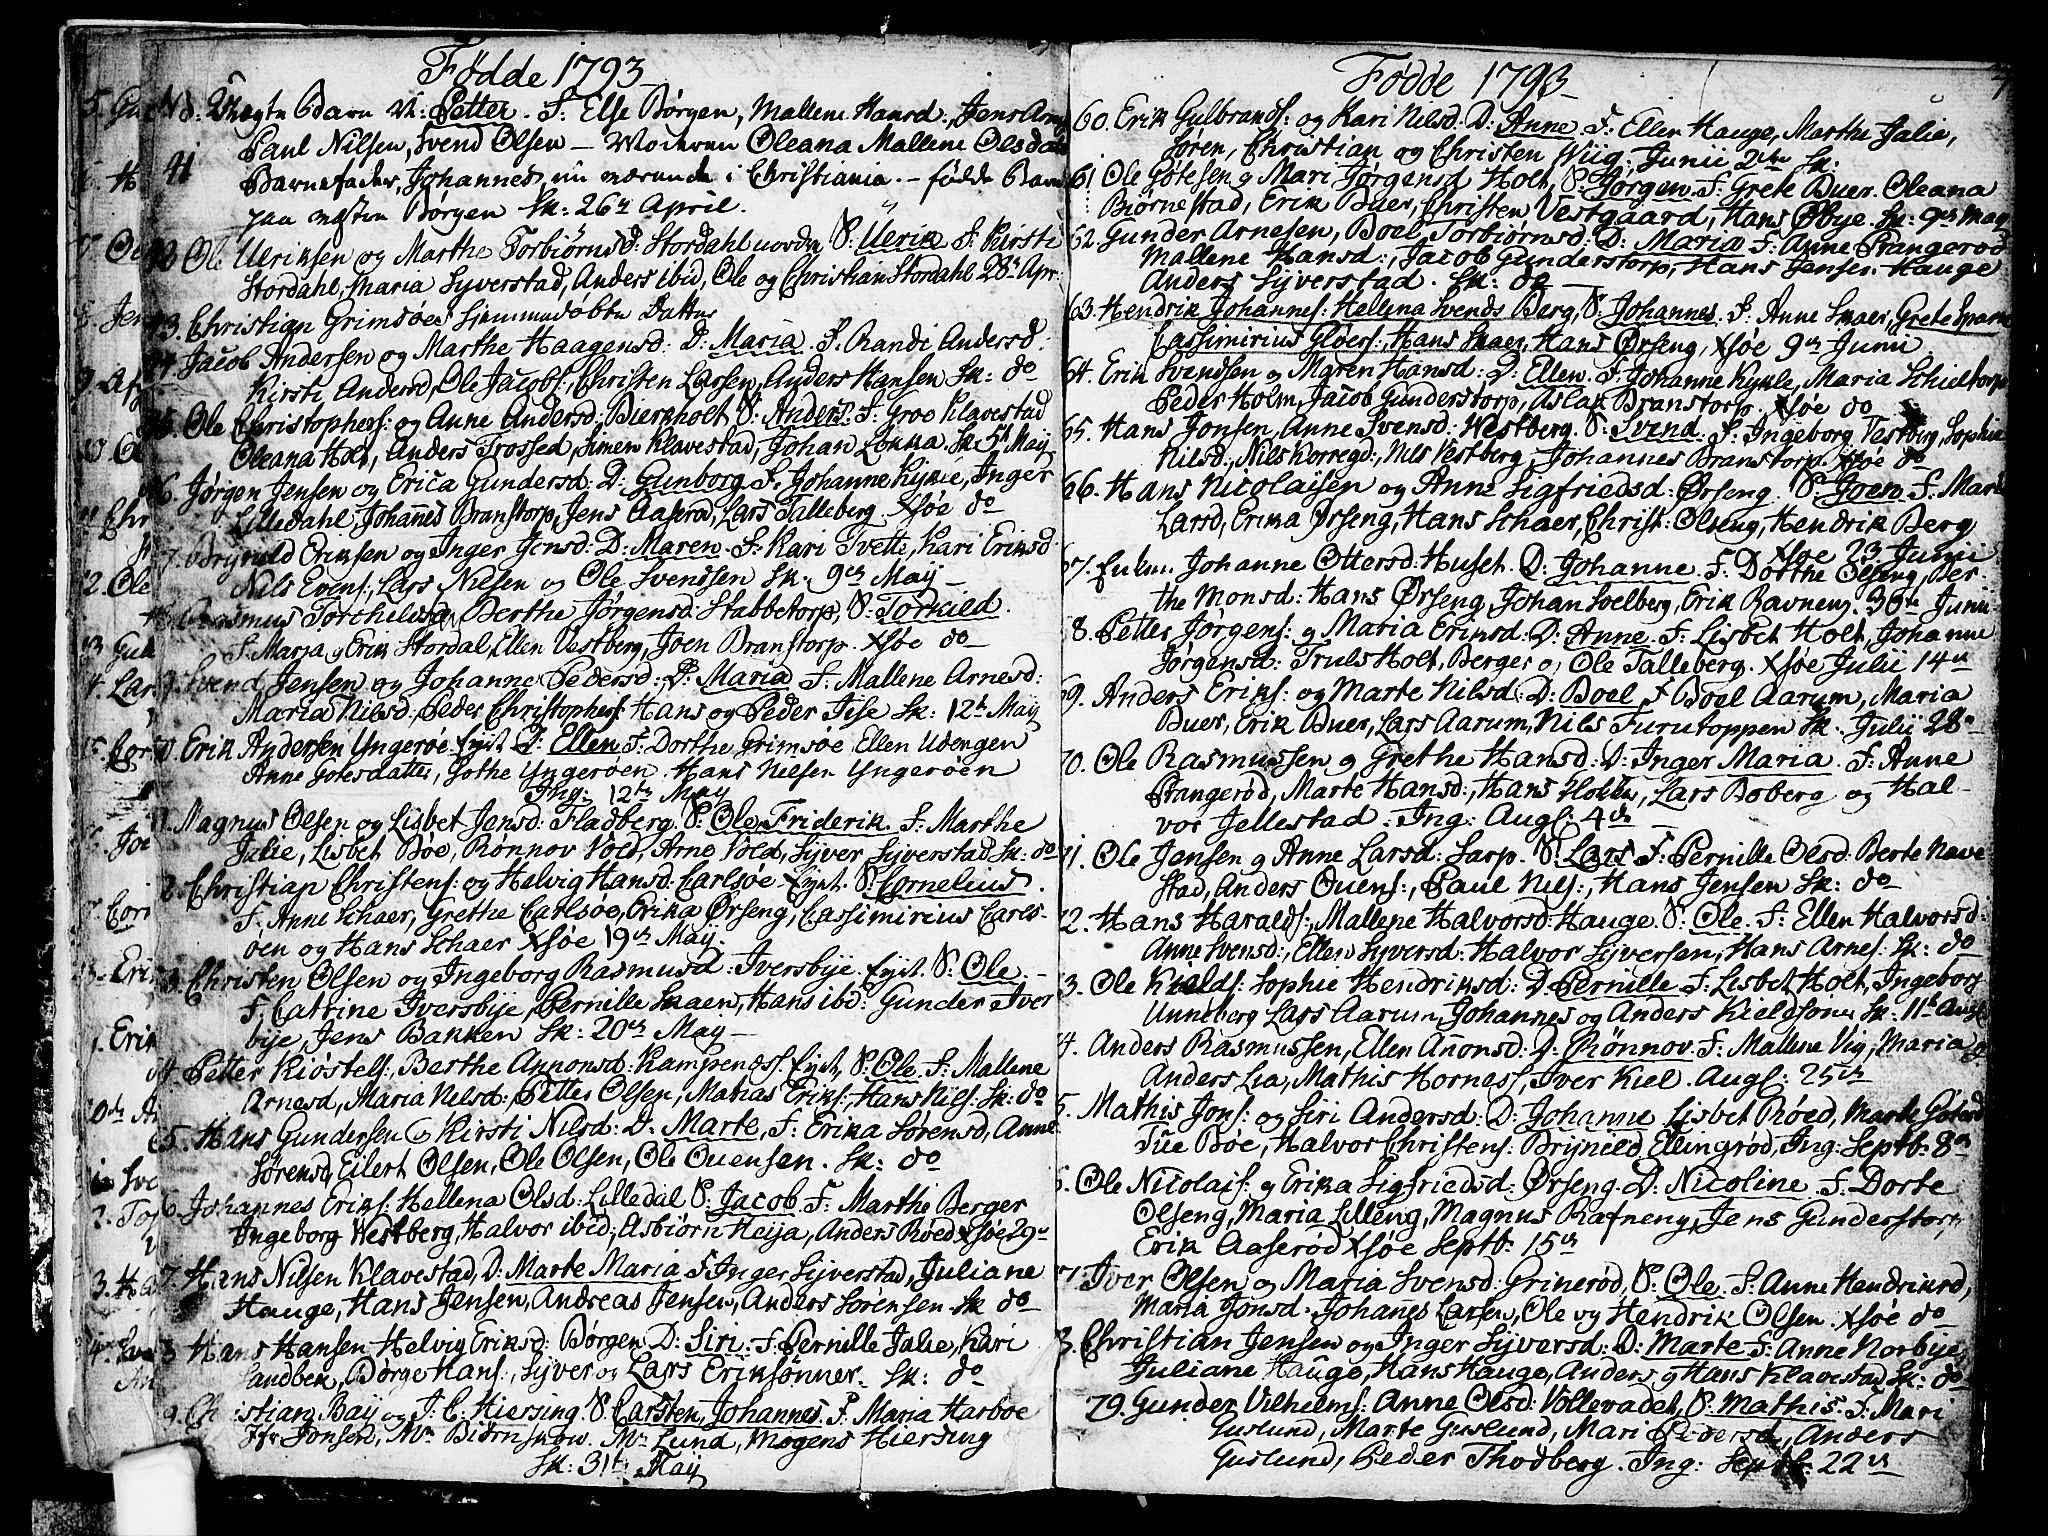 Fødde 1793
No. Uægte Barn N: Petter. F. Else Børgen, Mallene Hansd:, Jens
41 Paul Nilsen, Svend Olsen – Moderen Oleana Mallene Olsdatter
Barnefader, Johannes nu værende i Christiania. – fødde Barn
paa Børgen Sk: 26de April.
42 Ole Ulriksen og Marthe Torbiørnsd: Stordahl S: Ulrik F. Kirsti
Stordahl, Maria Syverstad, Anders ibid, Ole og Christian Stordahl 28de Apr:
43. Christian Grimsøes hiemmedøbte Datter
44. Jacob Andersen og Marthe Haagensd: D: Maria. F. Randi Andersd:
Kirsti Andersd, Ole Jacobs:, Christen Larsen, Anders Hansen Sk: do
45. Ole Christophers: og Anne Andersd: Bierkholt S. Anders. F. Groe Klavestad
Oleana Holt, Anders Trossed, Simen Klavestad, Johan Lokka Sk 5te Maij
46. Jørgen Jensen og Erica Gundersd: D: Gunborg F. Johanne Kykle, Inger
Lilledahl, Johanes Branstorp, Jens Aaserød, Lars Talleberg. Xsøe do
7. Brynild Eriksen og Inger Jonsd: D: Maren. F: Kari Tvette, Kari Eriksd:
Nils Evens:, Lars Nilsen og Ole Svendsen Sk: 9de Maij –
Rasmus Torchelsen Berthe Jørgensd: Stabbetorp, S: Torkild.
F. Maria, Erik Stordal, Ellen Vestberg, Joen Branstorp. Xsøe do
9. Svend Jensen og Johanne Pedersd: D: Maria F. Mallene Arnesd:
Maria Nilsd, Peder Christophers: Hans og Peder Tise Sk: 12te Maij
0. Erik Andersen Yngerøe D: Ellen F: Dorthe Grimsøe, Ellen Udengen
Anne Gotesdatter, Gothe Yngerøen. Hans Nilsen Yngerøen
Ing: 12te May
1. Magnus Olsen og Lisbet Jensd: Fladberg. S: Ole Friderik. F: Marthe
Jalie, Lisbet Bøe, Rønnov Vold, Arne Vold, Syver Syverstad Sk: do
2. Christian Christens: og Helvig Hansd: Carlsøe S. Cornelius.
F. Anne Schaer, Grethe Carlsøe, Erika Ørseng, Cassimirius Carls-
øen og Hans Schaer Xsøe 19de Maij.
3. Christen Olsen og Ingeborg Rasmusd: Iversbye. S: Ole. –
F. Catrine Iversbye, Pernille Skaer, Hans ibid: Gunder Iver
bye, Jens Bakken Sk: 20de May –
4 Petter Kiøstels:, Berthe Annonsd: Kampenæs S: Ole F. Mallene
Arnesd, Maria Nelsd: Petter Olsen, Matias Eriks:, Hans Nils: Sk: do
5. Hans Gundersen og Kirsti Nilsd: D: Marte, F: Erika Sørensd, Anne
Sørensd, Eilert Olsen, Ole Olsen, Ole Ouensen. Sk: do
6. Johannes Eriks: Hellena Olsd: Lilledal S: Jacob F: Marthe Berger
Ingeborg Westberg, Halvor ibid: Asbiørn Heija, Anders Røed Xsøe 29de
7. Hans Nilsen Klavestad, D: Marte Maria F Inger Syverstad, Juliane
Hauge, Hans Jensen, Andreas Jensen, Anders Sørensen. Sk do
Hans Hansen Helvig Eriksd: Børgen D: Siri. F. Pernille Jalie, Kari
Sandbek, Børge Hans:, Syver og Lars Eriksønner. Sk: do
9. Christian Baij og J. C. Hiersing. S: Carsten Johannes. F. Maria Harboe
Jfr Jensen, Mr Biørnskow. Mr Lund, Mogens Hiersing
Sk: 31te Maij
Fødde 1793
60. Erik Gulbrands: og Kari Nilsd: D: Anne. F. Ellen Hauge, Marthe Jalie,
Søren, Christian og Christen Wiig. Junii 2den Sk:
61 Ole Gotesen og Mari Jørgensd Holt, S: Jørgen. F. Grete Buer. Oleana
Biørnestad, Erik Buer, Christen Vestgaard, Hans Øbye. Sk: 9de May
62 Gunder Arnesen, Boel Torbiørnsd: D: Maria F. Anne Prangerød
Mallene Hansd:, Jacob Gunderstorp, Hans Jensen Hauge
Anders Syverstad. Sk: do
63. Hendrik Johannes: Hellena Svends Berg, S: Johannes. F. Anne Skaer, Grete Sparre
Cassimirius Gløers:, Hans Skaer, Hans Ørseng, Xsøe 9de Junii
64. Erik Svendsen og Maren Hansd: D: Ellen. F. Johanne Kykle, Maria Schieltorp
Peder Holm, Jacob Gunderstorp, Aslak Branstorp. Xsøe do
65. Hans Jonsen, Anne Svensd: Westberg S: Svend. F. Ingeborg Vestberg, Sophie
Nilsd:, Nils Korregd:, Nils Vestberg, Johannes Branstorp. Xsøe do
66. Hans Nicolaisen og Anne Sigfriedsd: Ørseng. S: Joen F. Marte
Larsd, Erika Ørseng, Hans Schaer, Christ: Olseng, Hendrik Berg
Xsøe 23 Junii
67. Enken Johanne Ottersd: Huset. D: Johanne. F. Dorthe Olseng, Ber-
the Monsd: Hans Ørseng, Johan Soelberg, Erik Ravneng. 30te Junii
8. Petter Jørgens: og Maria Eriksd: D: Anne. F. Lisbet Holt, Johanne
Jørgensd: Truls Holt, Berger og Ole Talleberg. Xsøe Julii 14de
69. Anders Eriks: og Marte Nilsd: D: Boel F Boel Aarum, Maria
Buer, Erik Buer, Lars Aarum, Nils Furutoppen Sk: Julii 28de
70. Ole Rasmussen og Grethe Hansd: D: Inger Maria. F: Anne
Prangerød, Marte Hansd:, Hans Holt, Lars Boberg og Hal-
vor Jellestad. Ing: Augs: 4de
71. Ole Jensen og Anne Larsd: Sarp. S: Lars F: Pernille Olsd: Berte Nave
stad, Anders Ouens:, Paul Nils:, Hans Jensen Sk: do
72. Hans Haralds:, Mallene Halvorsd: Hauge. S: Ole. F: Ellen Halvorsd:
Anne Svensd:, Ellen Syversd: Halvor Syversen, Hans Arnes: Sk: do
3. Ole Kields: Sophie Hendriksd: D: Pernille F. Lisbet Holt, Ingeborg
Unneberg Lars Aarum, Johannes og Anders Kieldsønner Sk: 11te Augs:
4. Anders Rasmussen, Ellen Anonsd: D: Rønnov. F: Mallene Vig, Maria og
Anders Lia, Mathis Hornes:, Iver Kiel. Augs: 25de
5. Mathis Jons: og Siri Andersd: D: Johanne Lisbet Røed, Marte Gotesd
Tue Bøe, Halvor Christens: Bryneld Ellingrød, Ing: Septb: 8de
6. Ole Nicolais: og Erika Sigfriedsd: Ørseng. D: Nicoline. F. Dorte
Olseng, Maria Lilleng, Magnus Rafneng, Jens Gunderstorp
Erik Aaserød Xsøe Septb: 15de
7. Iver Olsen og Maria Svensd: Grinerød, S: Ole. F. Anne Hendriksd,
Maria Jonsd: Johanes Larsen, Ole og Hendrik Olsen. Xsøe do
8. Christian Jensen og Inger Syversd: D: Marte F: Anne Norbye
Juliane Hauge, Hans Hauge, Anders og Hans Klavestad Sk: do
79. Gunder Vilhelms: Anne Olsd: Vollevadet, S. Mathis. F: Mari
Guslund, Marte Guslund, Mari Pedersd, Anders
Guslund, Peder Thodberg. Ing: Septb: 22de